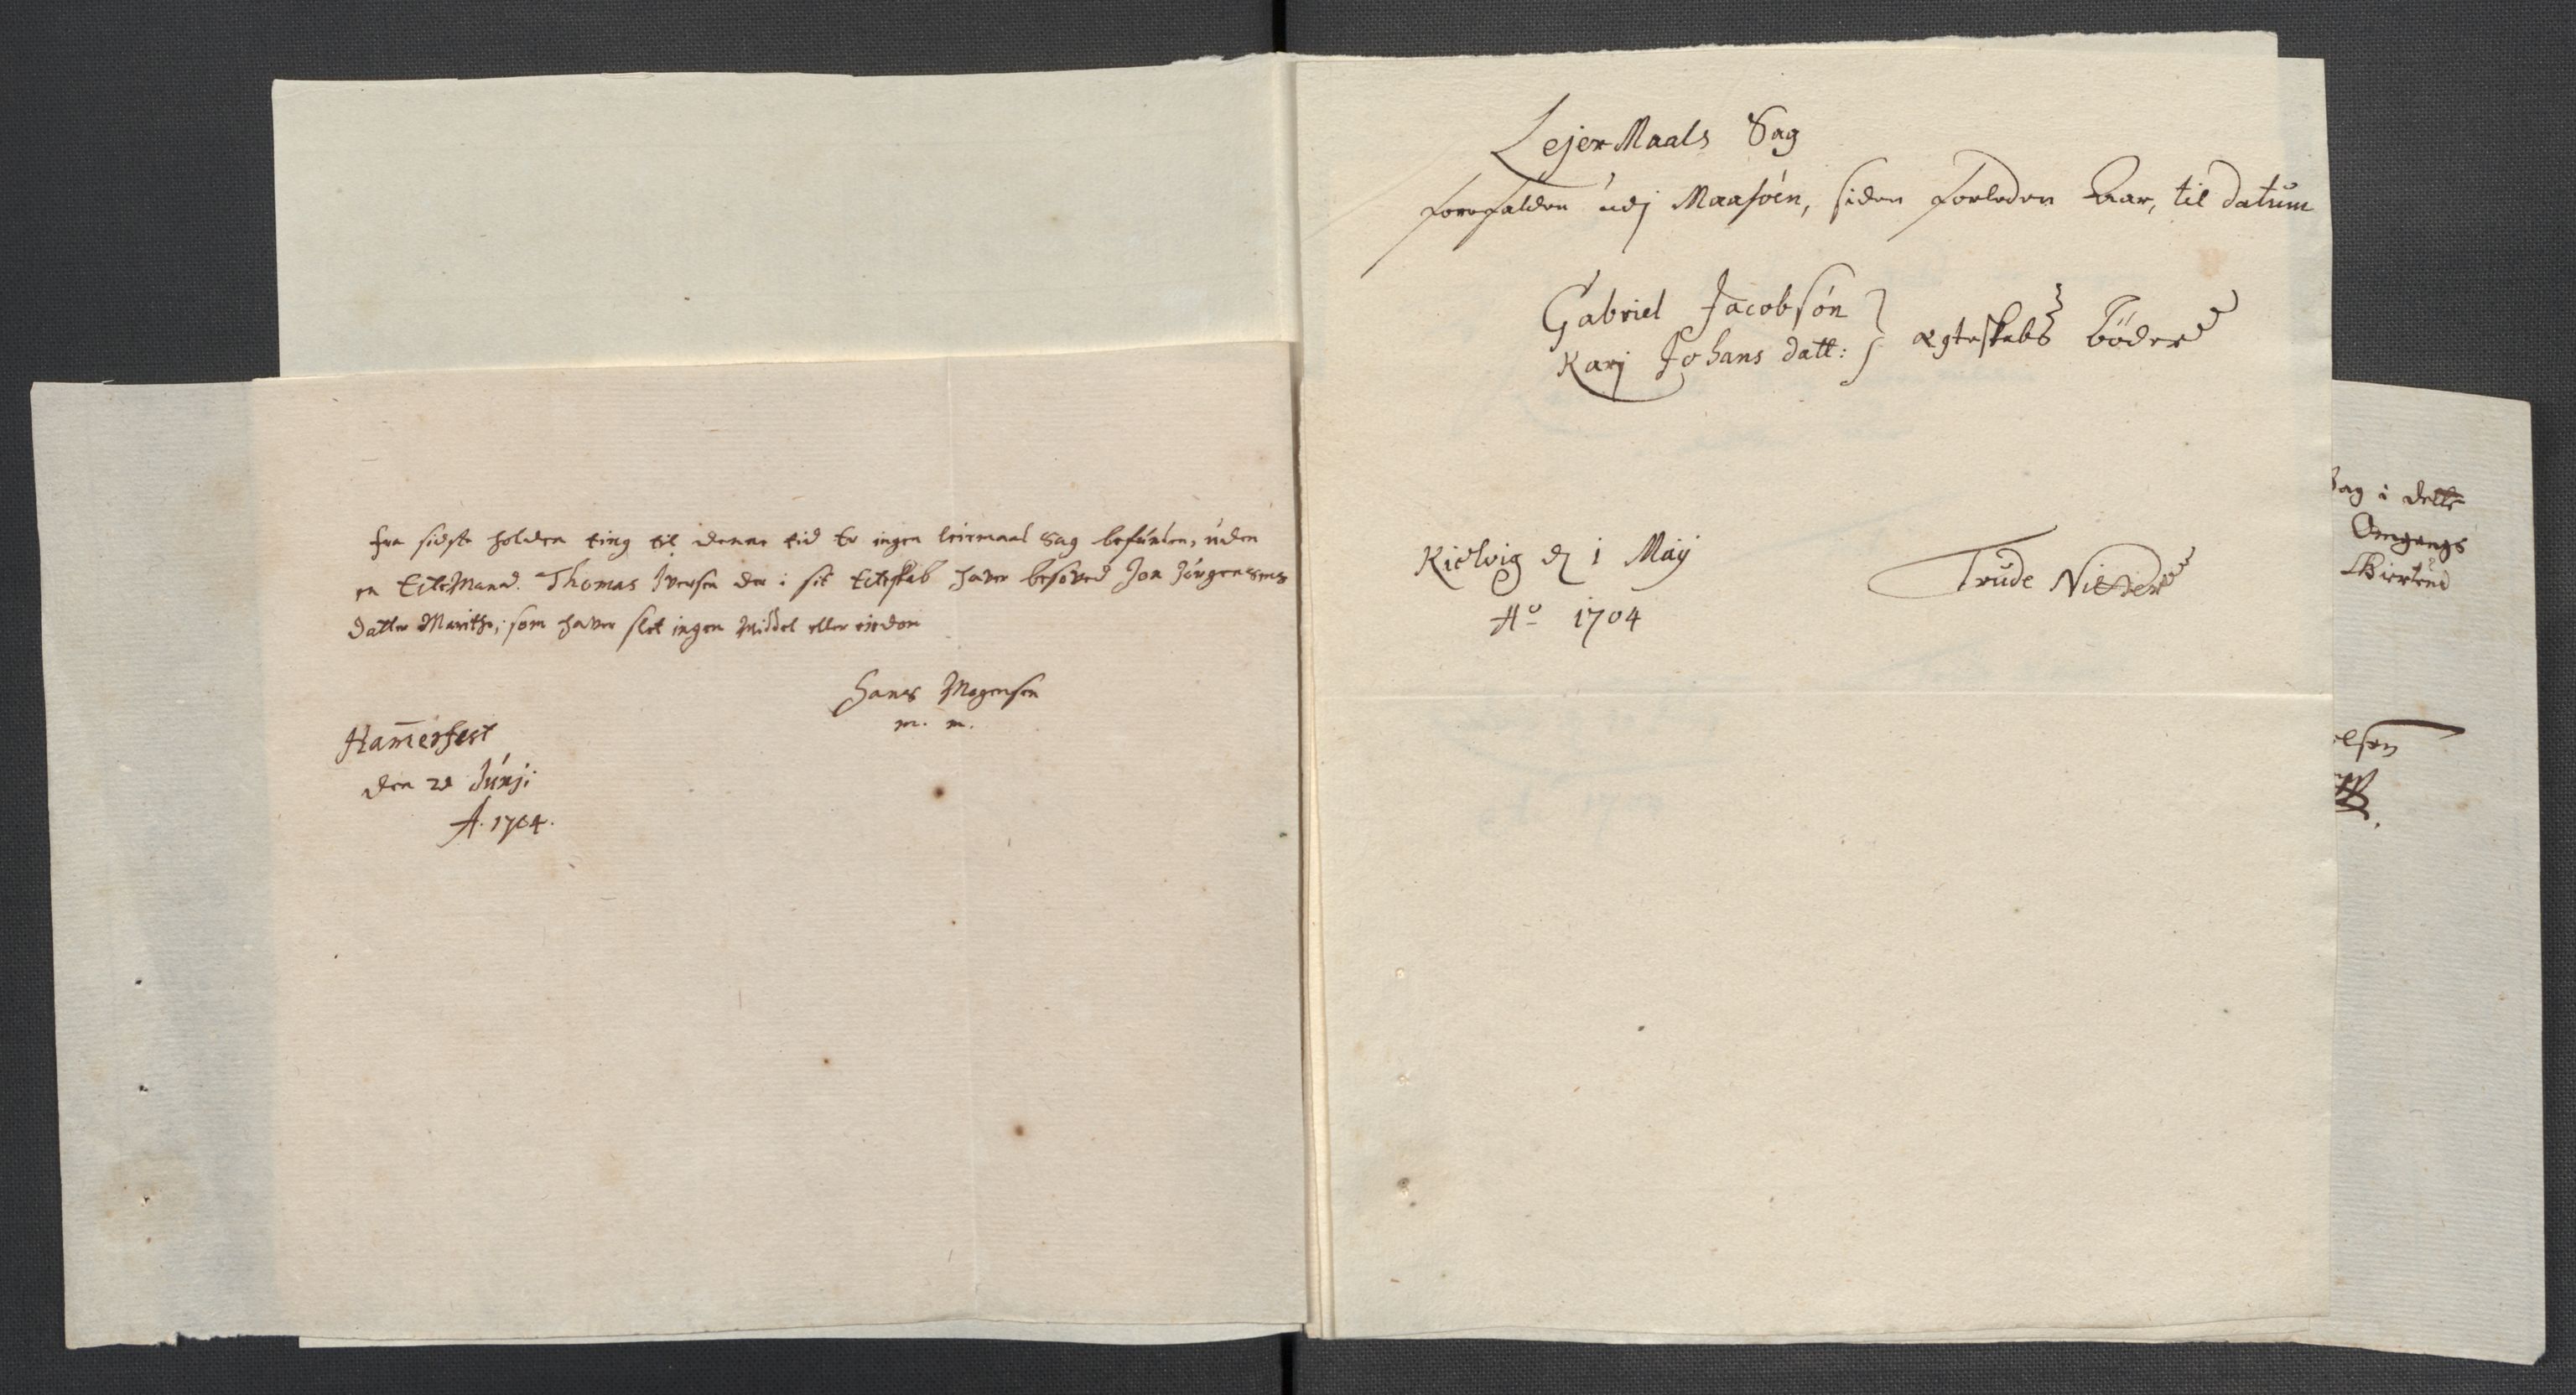 fra sidste holden ting til denne tid Er ingen leiermaal Sag befunden, uden
en EcteMand. Thomas Iversen der i sit Ecteskab haver besoved Jon Jörgensens
datter Marithe, som haver slet ingen Middel eller eiedom
Hanns Mogensen
m. m.
Ham̄erfest
den 2d Junij
A. 1704.
LejerMaals Sag
forefalden udj Maasöen, siden forleden Aar, til datum
Gabriel Jacobsön
Karj Johans datt: } ægteskabs böder
Kielvig d 1 Maij
Ao 1704
Trude Nitter
Sag i dette
Omgangs
elsen